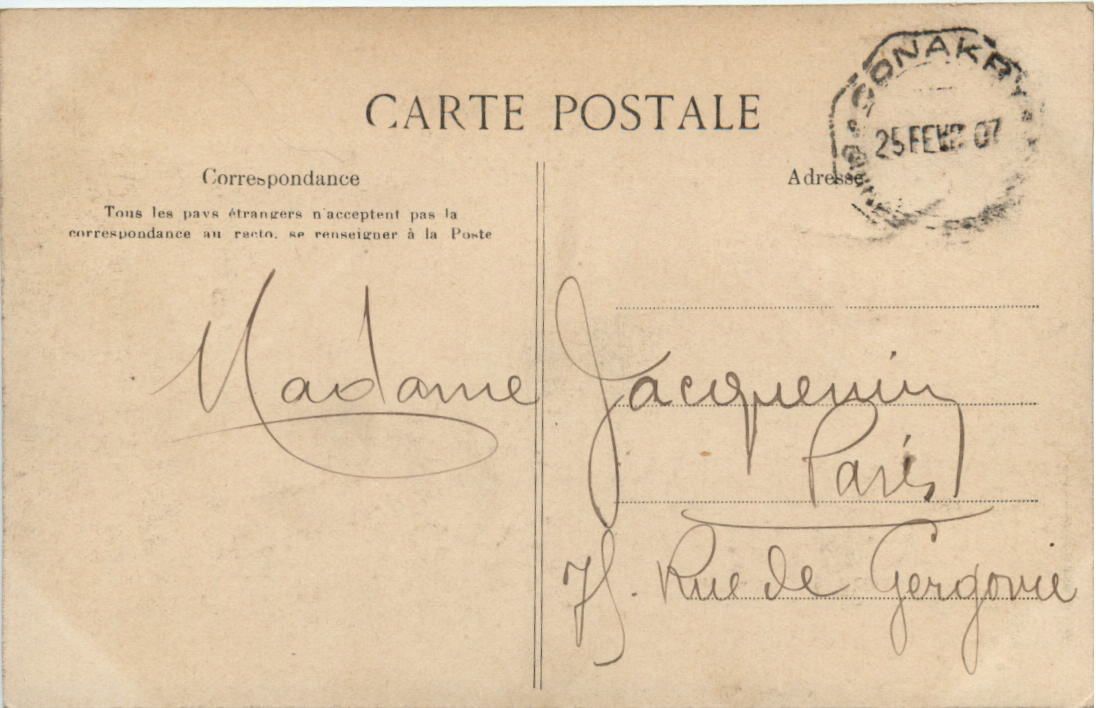 CARTE POSTALE
CONAKRY
25 FEVR 07
Correspondance
Adresse
Tous les pays étrangers n'acceptent pas la
correspondance au recto, se renseigner à la Poste
Madame Jacquemin
Paris
75. Rue de Gergovie